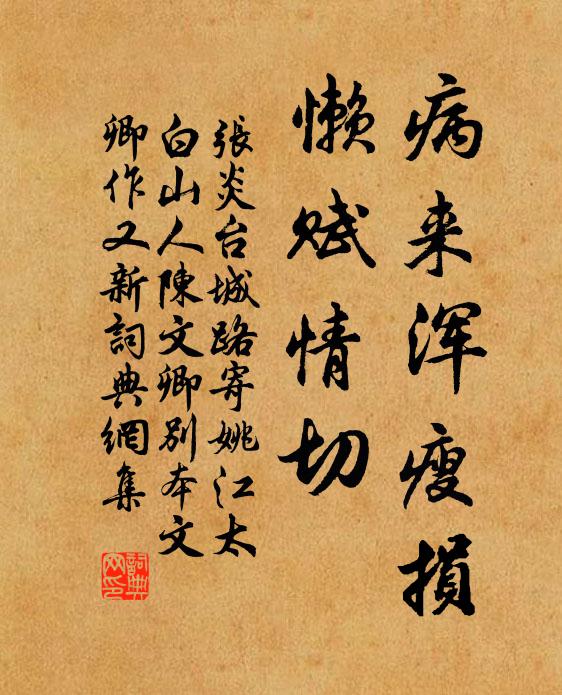 病来浑瘦损
懒赋情切
張炎台城路寄姚江太
白山人陳文卿別本文
卿作又新詞典網集
詞典
网印